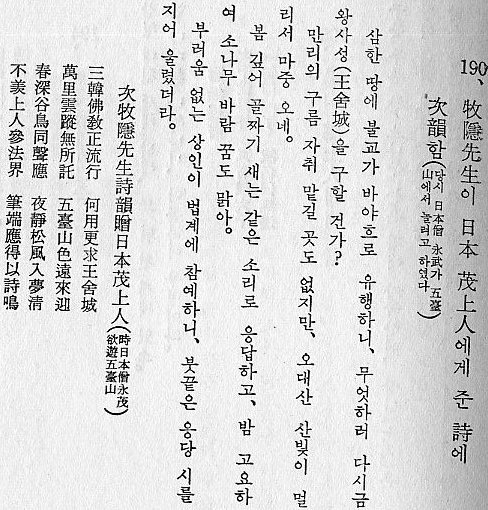 190、牧隱先生이 日本 茂上人에게 준 詩에
次韻함(당시 日本僧 永武가 五臺山에서 놀려고 하였다)
삼한 땅에 불교가 바야흐로 유행하니、무엇하러 다시금
왕사성(王舍城)을 구할 건가?
만리의 구름 자취 맡길 곳도 없지만、오대산 산빛이 멀
리서 마중 오네。
봄 깊어 골짜기 새는 같은 소리로 응답하고、밤 고요하
여 소나무 바람 꿈도 맑아。
부러움 없는 상인이 법계에 참예하니、붓끝은 응당 시를
지어 울렸더라。
次牧隱先生詩韻贈日本茂上人(時日本僧永茂欲遊五臺山)
三韓佛敎正流行 何用更求王舍城
萬里雲蹤無所託 五臺山色遠來迎
春深谷鳥同聲應 夜靜松風入夢淸
不羨上人參法界 筆端應得以詩鳴